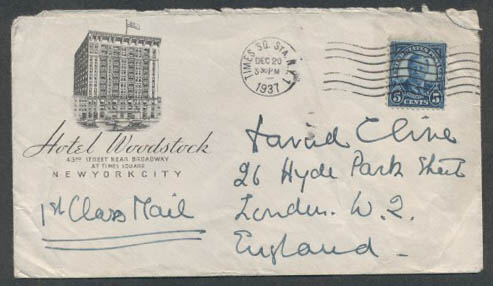 Hotel Woodstock
43RD STREET NEAR BROADWAY
AT TIMES SQUARE
NEW YORK CITY
1st Class Mail
TIMES SQ. STA. N.Y.
DEC 20
3 30 PM
1937
5 CENTS 5
Cline
26 Hyde Park Street
London. W.2.
England